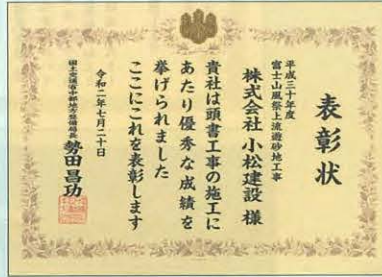 表彰状
平成三十年度
富士山風祭上流遊砂地工事
株式会社 小松建設 様
貴社は頭書工事の施工に
あたり優秀な成績を
挙げられました
ここにこれを表彰します
令和二年七月二十日
国土交通省中部地方整備局長 勢田昌功